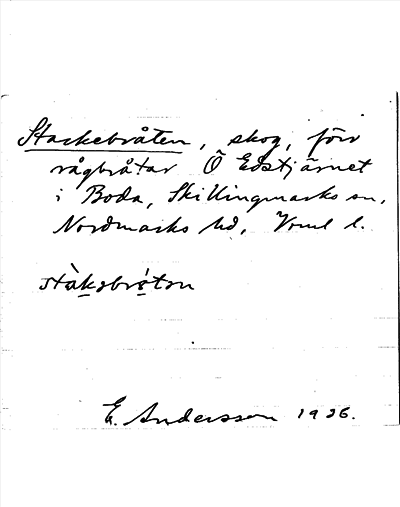 Stackebråten, skog, förr
rågbråtar Ö Edstjärnet
i Boda, Skillingmarks sn,
Nordmarks hd, Verml l.
stàkəbrɷ́tən
E. Andersson 1926.